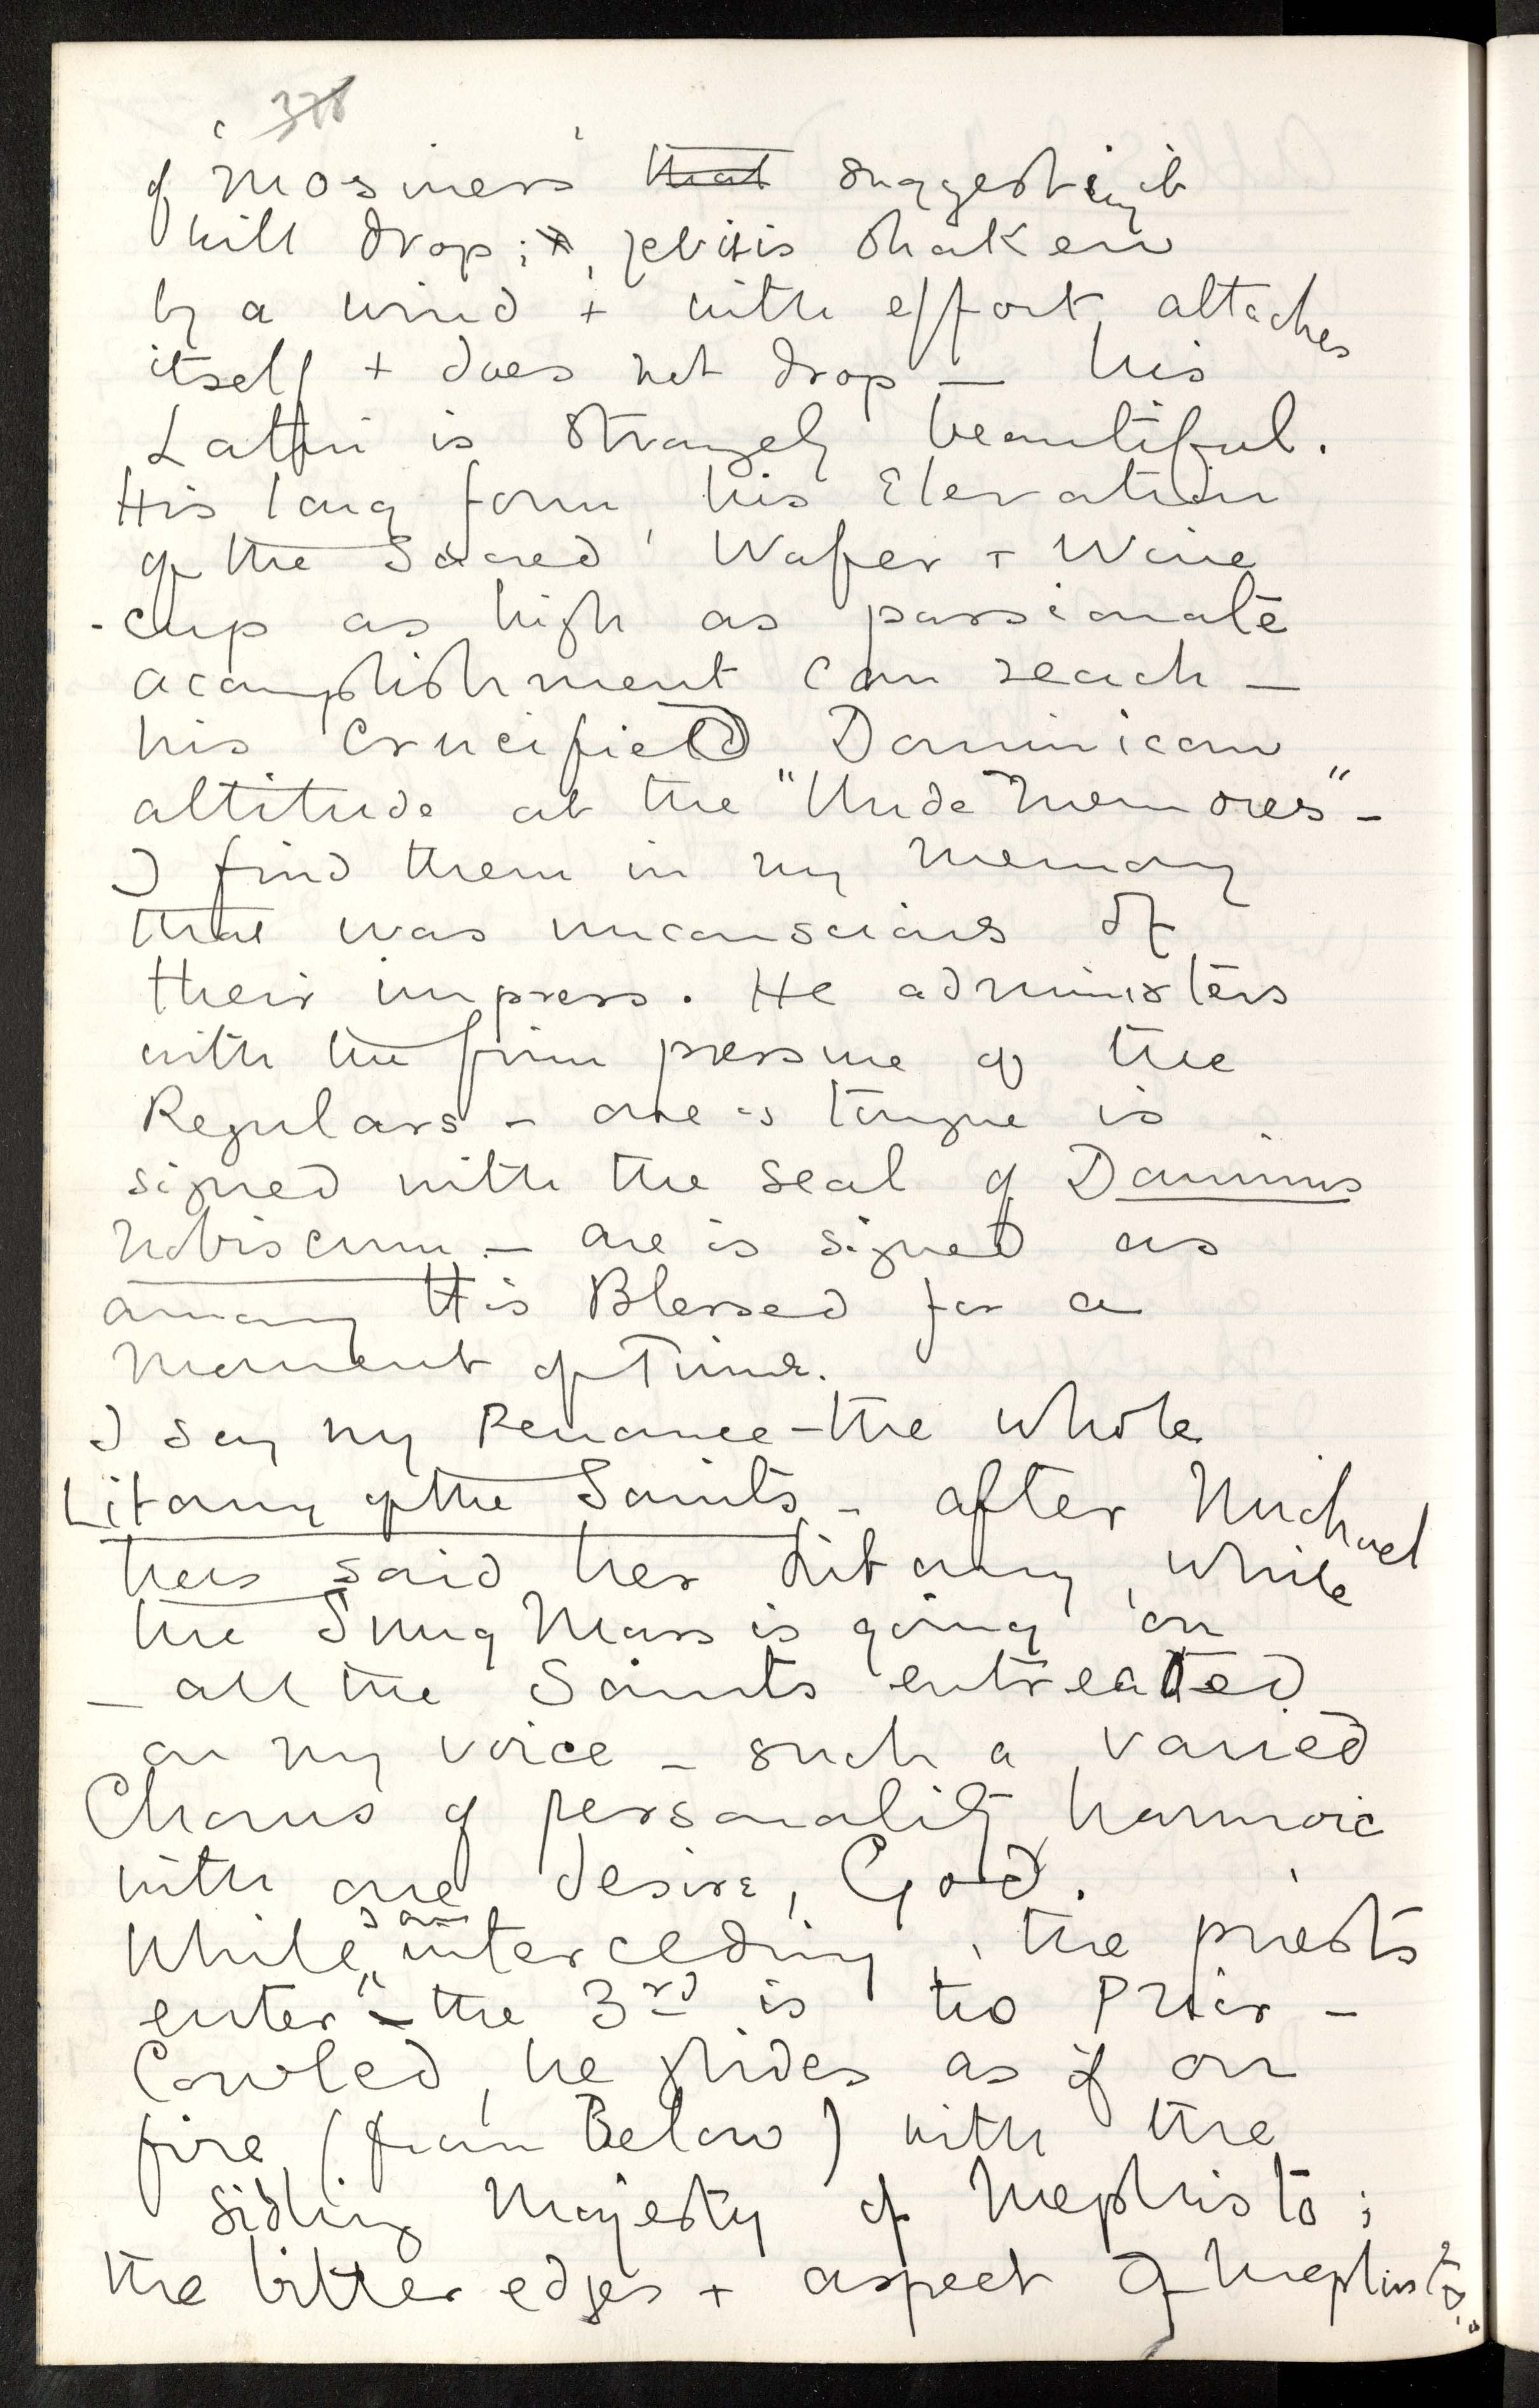 378
of 'mosiness' that suggesting it
will drop; yet it is shaken
by a wind + with effort attaches
itself + does not drop — his
Latin is strangely beautiful.
His long form, his Elevation
of the Sacred Wafer + Wine
-cup as high as passionate
acomplishment can reach —
his Crucified Dominican
altitude at the "Unde Memores" -
I find them in my memory
that was unconscious of
their impress. He administers
with the firm pressure of the
Regulars - one's tongue is
signed with the seal of Dominus
nobiscum - one is signed as
among His Blessed for a
moment of Time.
I say my Penance - the whole
Litany of the Saints - after Michael
has said her Litany, while
the Sung Mass is going on
- all the Saints entreated
on my voice - such a varied
Chorus of personality harmonic
with one desire, God.
While I am interceding, the priests
enter - the 3rd is the Prior -
Cowled, he glides as if on
fire (from Below) with the
sidling Majesty of Mephisto;
the bitter edges + aspect of Mephisto.